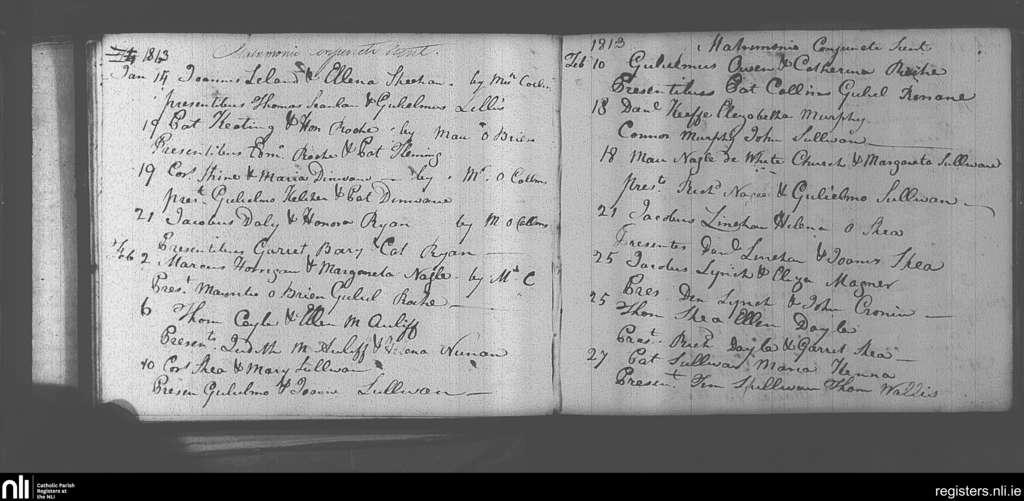 1813 Matrimonio conjuncti sunt.
Jan 14 Joannes Leland & Ellena Sheehan. by Mr
presentibus Thomas Scanlan & Gulielmus Lillis
19 Pat Keating & Hon Roche. by Mau O Brien
Presentibus Edm. Roche & Pat Fleming
19 Cors Shine & Maria Dinwane by. Mr. O Collins
prest Gulielmo Keliher & Pat Dinwane
21 Jacobus Daly & Honora Ryan by M O Collins
Presentibus Garret Bary & Cat Ryan
Feb 2 Marcus Horrigan & Margareta Nagle by Mr C
Pres. Mauritio O Brien Guliel Roche
6 Thom Coyle & Ellen M Auliff
Presents Judith M Auliff & Helena Nunan
10 Cors Shea & Mary Sullivan
Presen Gulielmo & Joane Sullivan
1813 Matrimonio Conjuncti Sunt
Feb 10 Gulielmus Owen & Catherina Roche
Presentibus Pat Collins Guliel Renane
18 Danl Keeffe Elezobetha Murphy
Connor Murphy John Sullivan
18 Mau Nagle de White Church & Margareta Sullivane
prest. Richd Nagle & Gulielmo Sullivan
21 Jacobus Linehan Helena O Shea
Presentes Danl Linehan & Joanes Shea
25 Jacobus Lynch & Eliza Magner
Pres Den Lynch & John Cronin
25 Thom Shea Ellen Doyle
Prest. Richd Doyle & Garret Shea
27 Pat Sullivan Maria Kenna
Present. Tim Spillwan Thom Wallis
nli
Catholic Parish
Registers at
the NLI
registers.nli.ie